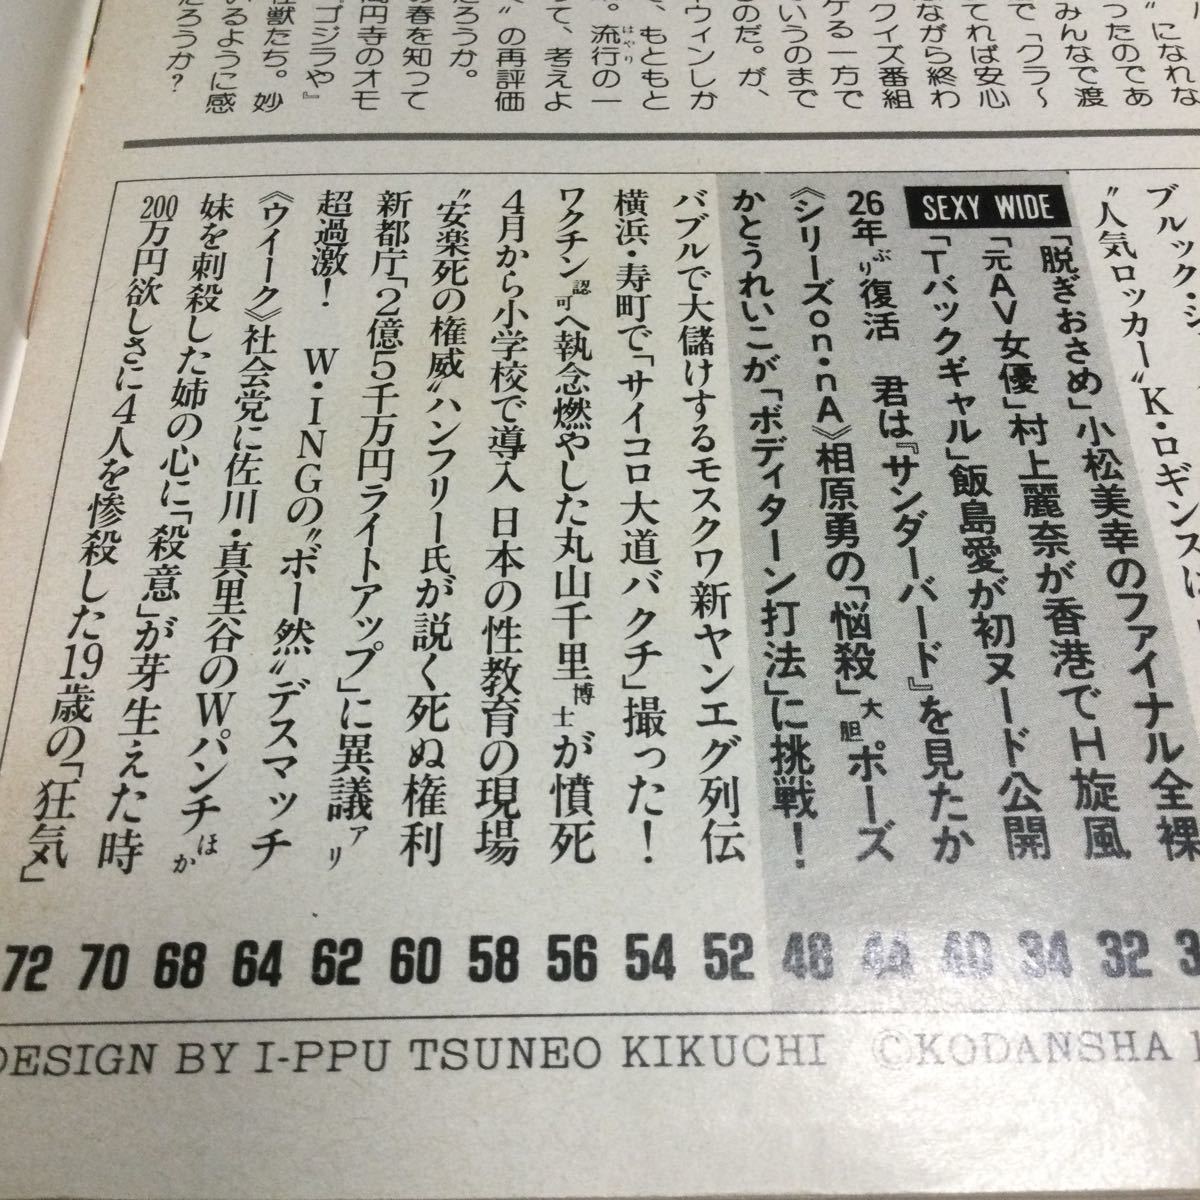 になれな
ったのであ
みんなで渡
で「クラ〜
てれば安心
ながら終わ
クイズ番組
ケる一方で
いうのまで
のだ。が、
ウィンしか
、もともと
。流行の一
はやり
て、考えよ
〟の再評価
だろうか。
の春を知って
円寺のオモ
ゴジラや』
怪獣たち。妙
いるように感
だろうか?
ブルック・シ
〝人気ロッカー〟K・ロギンスは
SEXY WIDE
「脱ぎおさめ」小松美幸のファイナル全裸 32
「元AV女優」村上麗奈が香港でH旋風 34
「Tバックギャル」飯島愛が初ヌード公開 40
26年ぶり復活 君は『サンダーバード』を見たか 44
《シリーズon・nA》相原勇の「悩殺」大胆ポーズ
かとうれいこが「ボディターン打法」に挑戦! 48
バブルで大儲けするモスクワ新ヤンエグ列伝 52
横浜・寿町で「サイコロ大道バクチ」撮った! 54
ワクチン認可へ執念燃やした丸山千里博士が憤死 56
4月から小学校で導入 日本の性教育の現場 58
〝安楽死の権威〟ハンフリー氏が説く死ぬ権利 60
新都庁「2億5千万円ライトアップ」に異議アリ 62
超過激! W・INGの〝ボー然〟デスマッチ 64
《ウイーク》社会党に佐川・真里谷のWパンチほか 68
妹を刺殺した姉の心に「殺意」が芽生えた時 70
200万円欲しさに4人を惨殺した19歳の「狂気」 72
DESIGN BY I-PPU TSUNEO KIKUCHI ©KODANSHA